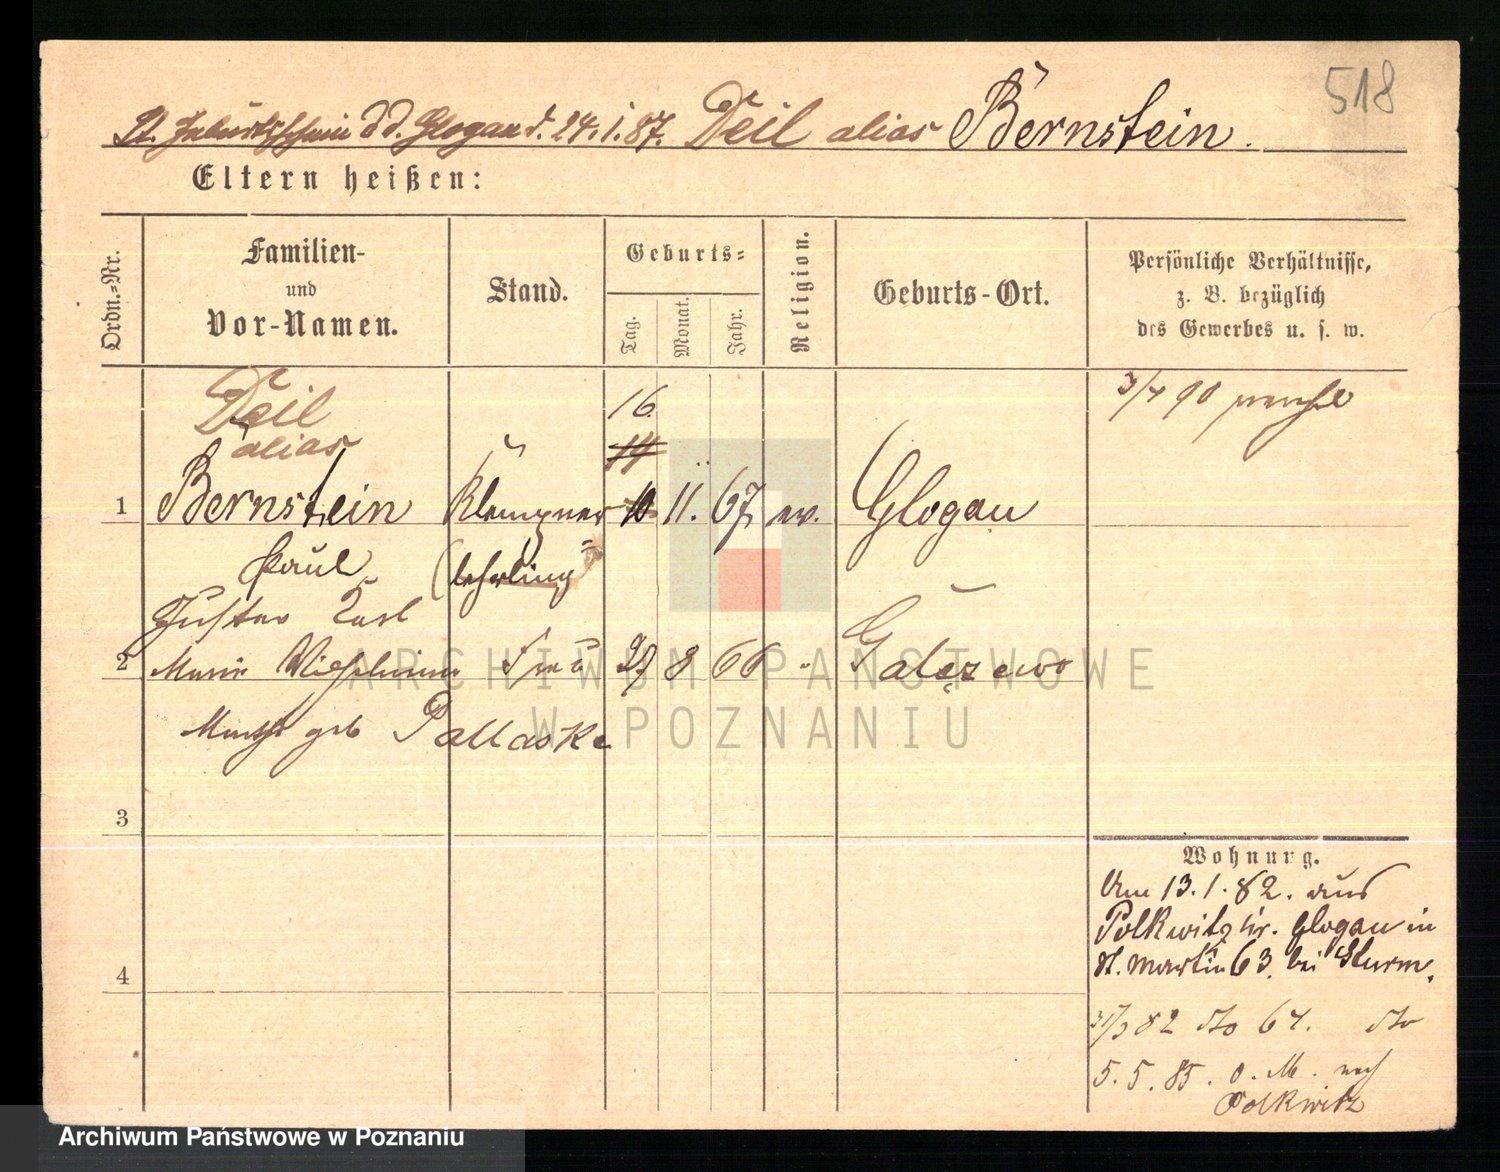 518
St. Geburtsschein d d. Glogau d. 24.1.87. Deil alias Bernstein.
Eltern heißen:
Ordn.=Nr.
Familien-
und
Vor-Namen.
Stand.
Geburts=
Tag.
Monat.
Jahr.
Religion.
Geburts-Ort.
Persönliche Verhältnisse,
z. B. bezüglich
des Gewerbes u. s. w.
Deil
alias
16
14
3/4 90
1 Bernstein Klempner 10 11. 67 ev. Glogau
Paul (lehrling
Gustav Karl
2 Marie Wilhelmine Frau 27 8 66 Gałęzewo
geb Pallaske
3
4
Wohnung.
Am 13.1.82. aus
Polkwitz Kr. Glogau in
St. Martin 63. bei Sturm.
31/3 82 dto 64. dto
5. 5. 85. o. M. nach
Polkwitz
ARCHIWUM PAŃSTWOWE
W POZNANIU
Archiwum Państwowe w Poznaniu